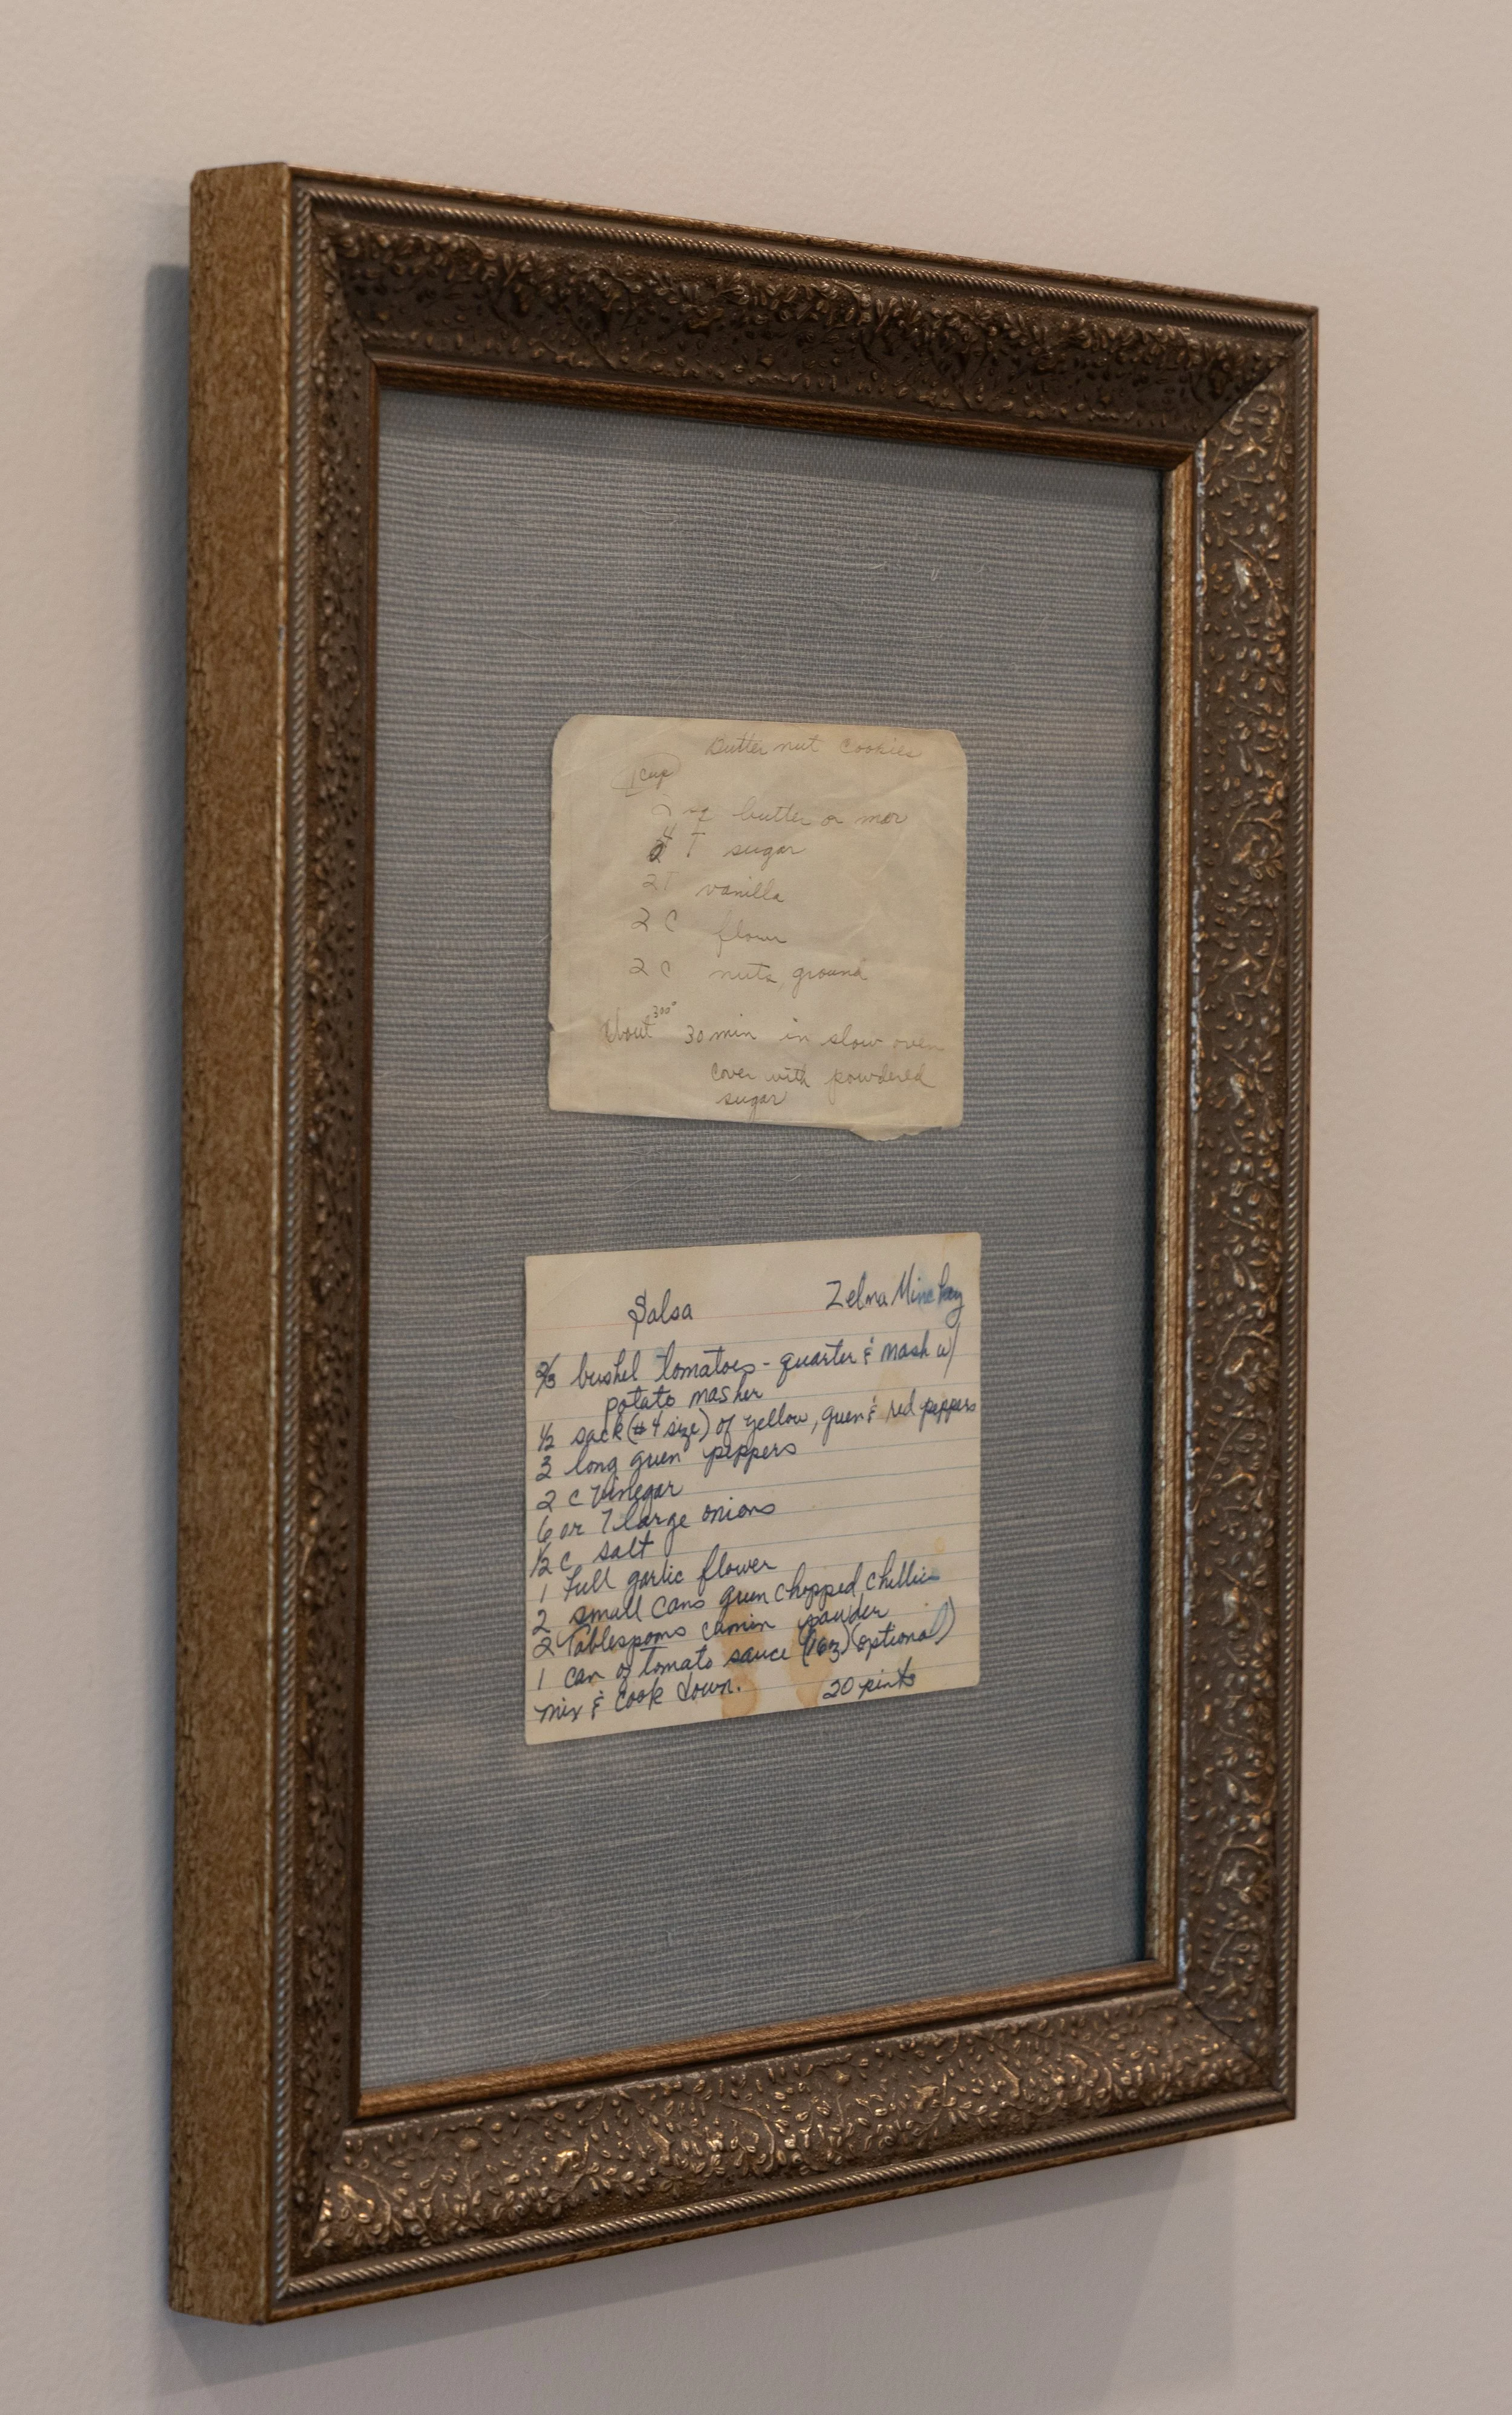 Butternut Cookies
1 cup
2 sq butter or mar
4 T sugar
2T vanilla
2 C flour
2 C nuts, ground
About 300° 30 min in slow oven
cover with powdered
sugar
Salsa Zelma
2/3 bushel tomatoes - quarter & mash w/
potato masher
1/2 sack (#4 size) of yellow, green & red peppers
3 long green peppers
2 c Vinegar
6 or 7 large onions
1/2 c salt
1 full garlic flower
2 small cans green chopped chillies
2 Tablespoons cumin powder
1 can of tomato sauce (16oz) (optional)
mix & cook down. 20 pints